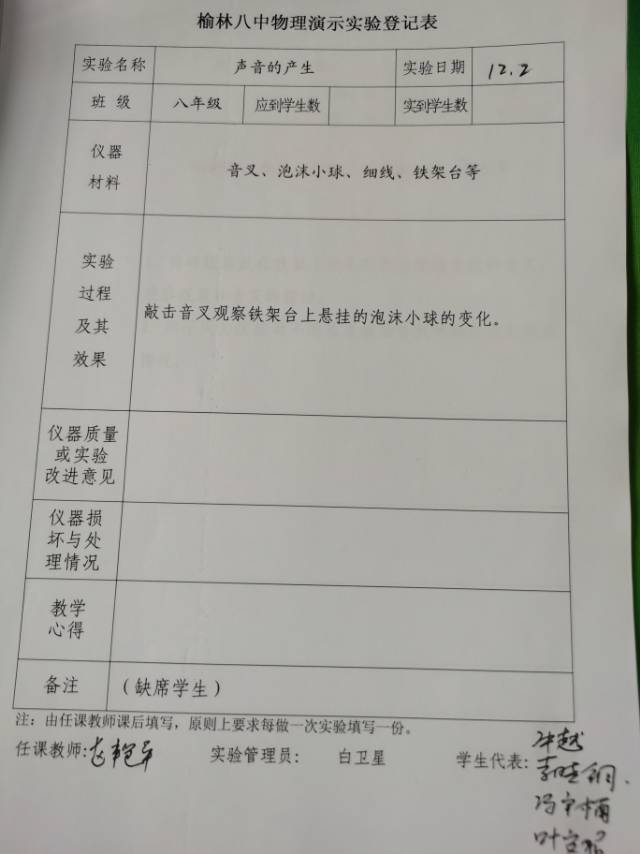 榆林八中物理演示实验登记表
实验名称 声音的产生 实验日期 12.2
班 级 八年级 应到学生数 实到学生数
仪器
材料
音叉、泡沫小球、细线、铁架台等
实验
过程
及其
效果
敲击音叉观察铁架台上悬挂的泡沫小球的变化。
仪器质量
或实验
改进意见
仪器损
坏与处
理情况
教学
心得
备注 （缺席学生）
注：由任课教师课后填写，原则上要求每做一次实验填写一份。
任课教师: 实验管理员: 白卫星 学生代表: